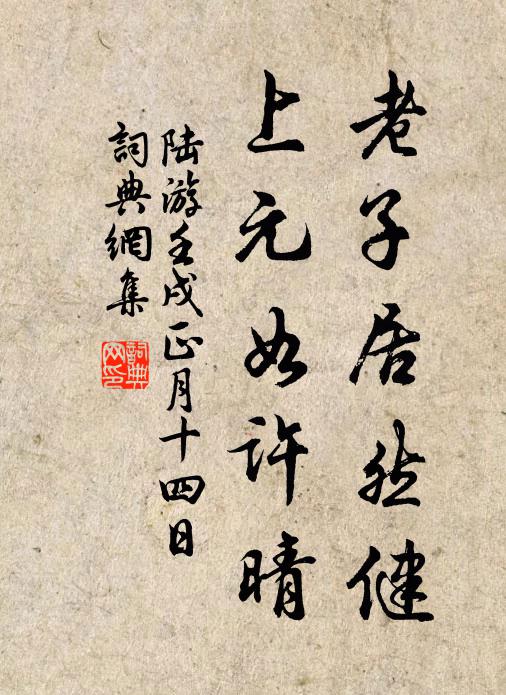 老子居然健
上元如許晴
陸游壬戌正月十四日
詞典網集
詞典
网印